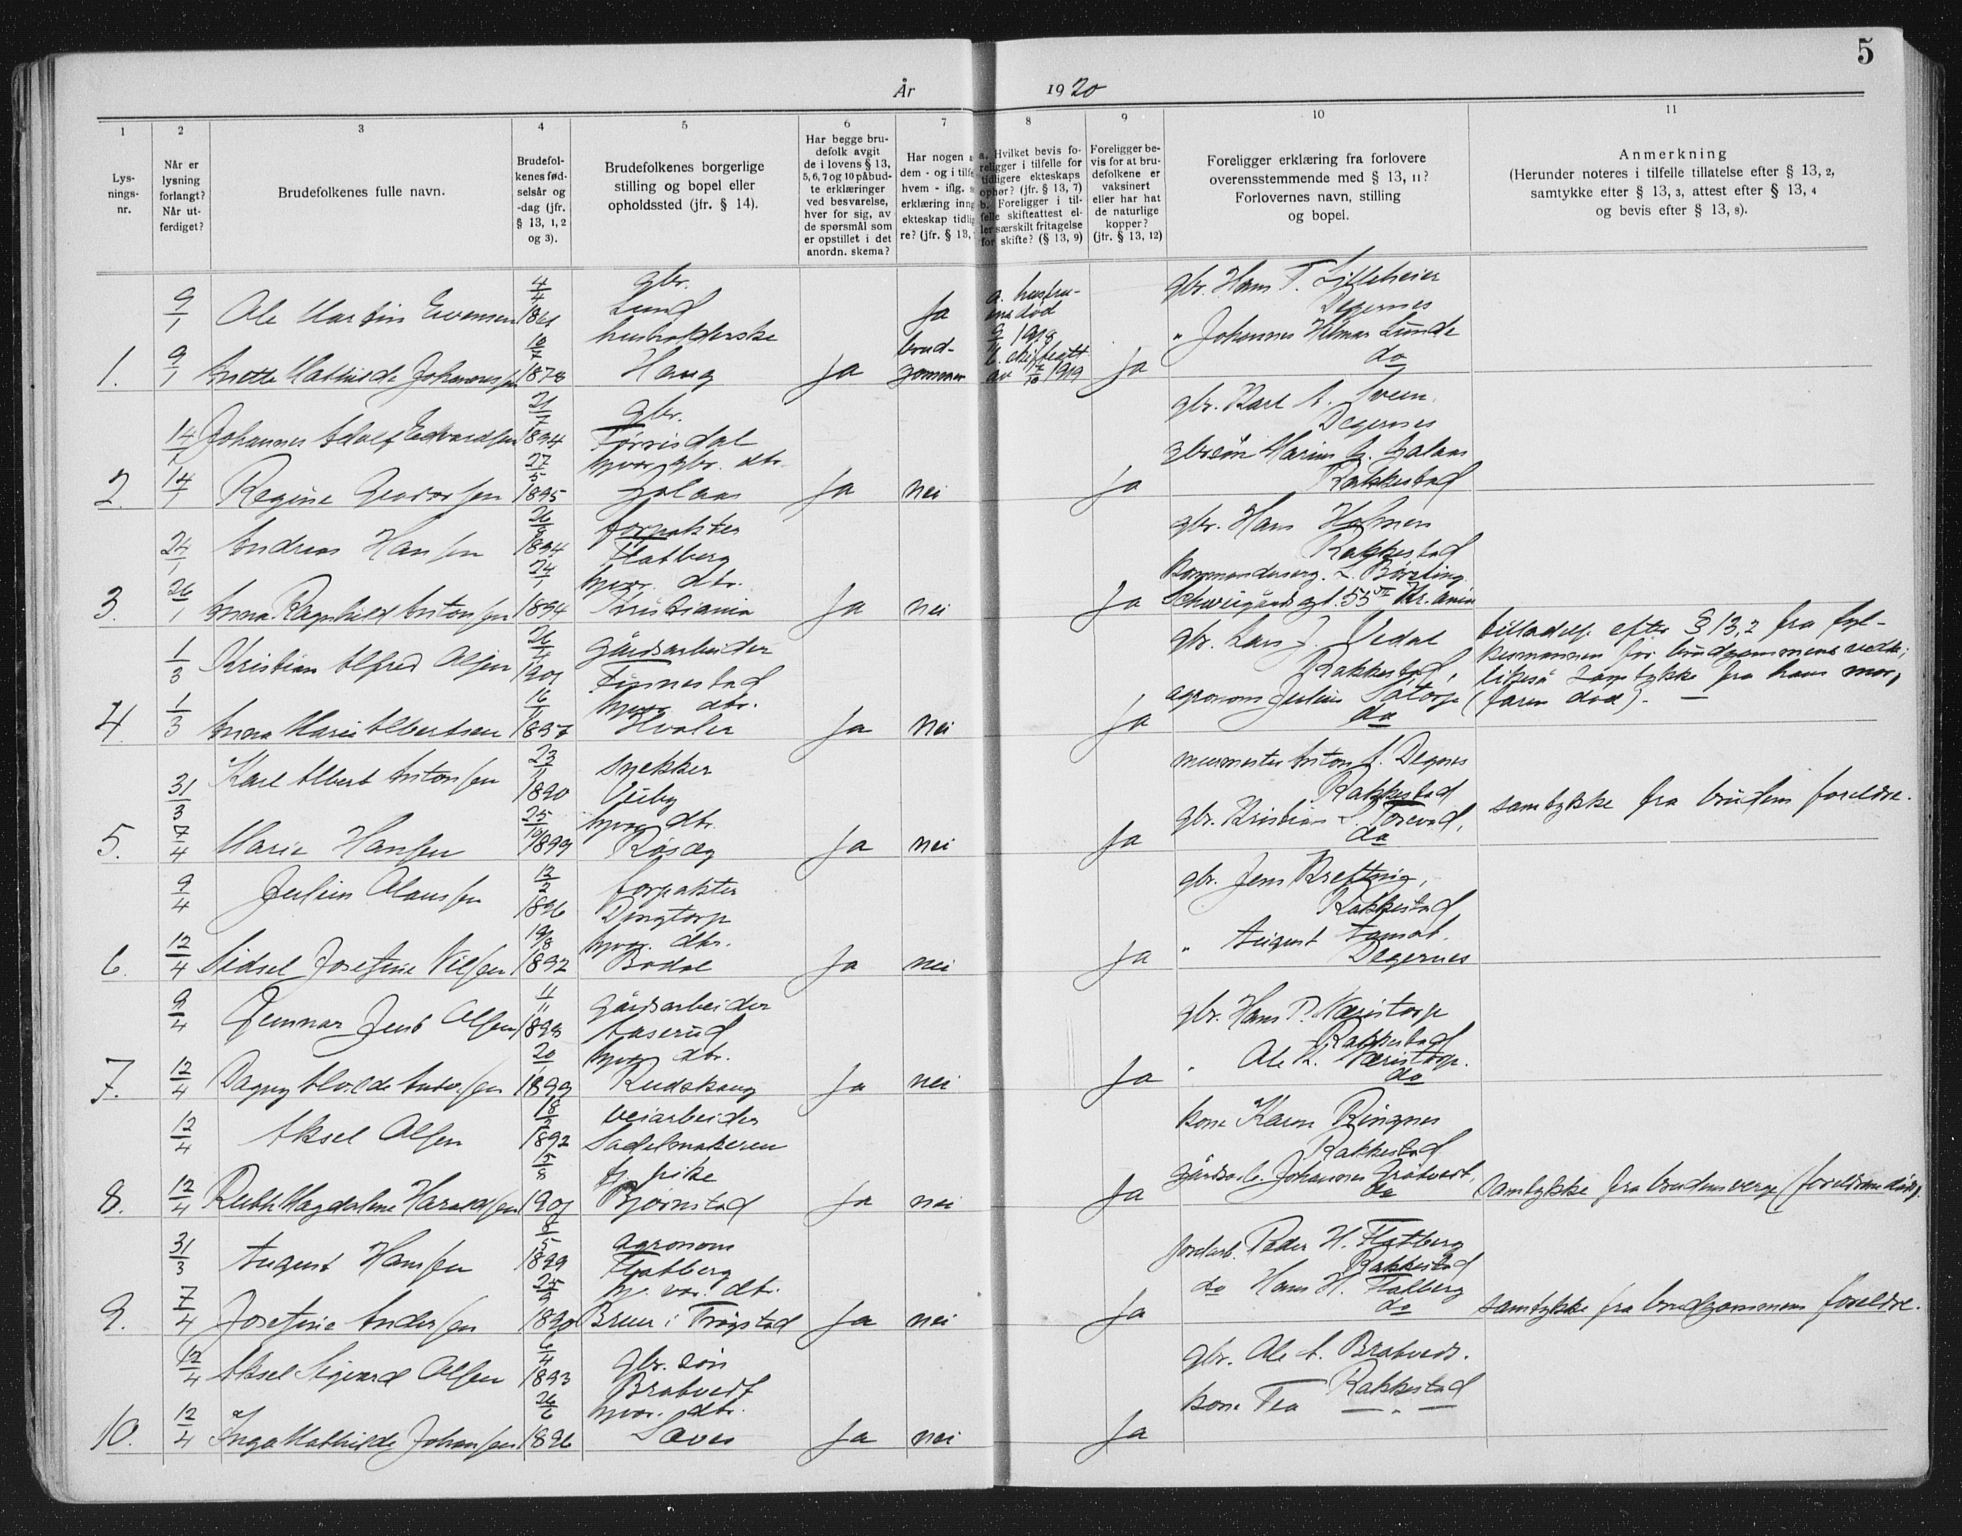 5
År 1920
1
2
3
4
5
6
7
8
9
10
11
Lys-
nings-
nr.
Når er
lysning
forlangt?
Når ut-
ferdiget?
Brudefolkenes fulle navn.
Brudefol-
kenes fød-
selsår og
-dag (jfr.
§ 13, 1, 2
og 3).
Brudefolkenes borgerlige
stilling og bopel eller
opholdssted (jfr. § 14).
Har begge bru-
defolk avgit
de i lovens § 13,
5, 6, 7 og 10 påbud-
te erklæringer
ved besvarelse,
hver for sig, av
de spørsmål som
er opstillet i det
anordn. skema?
Har nogen a
dem - og i tilfe
hvem - iflg.
erklæring inng
ekteskap tidlig
re? (jfr. § 13,
a. Hvilket bevis fo-
religger i tilfelle for
tidligere ekteskaps
ophør? (jfr. § 13, 7)
b. Foreligger i til-
felle skifteattest el-
ler særskilt fritagelse
for skifte? (§ 13, 9)
Foreligger be-
vis for at bru-
defolkene er
vaksinert
eller har hat
de naturlige
kopper?
(jfr. § 13, 12)
Foreligger erklæring fra forlovere
overensstemmende med § 13, 11?
Forlovernes navn, stilling
og bopel.
Anmerkning
(Herunder noteres i tilfelle tillatelse efter § 13, 2,
samtykke efter § 13, 3, attest efter § 13, 4
og bevis efter § 13, 8).
9/1 Ole Martin Evensen 4/4 gbr. Lund
1. 9/1 Anette Mathilde Johannessen 1878 husholderske Haug Ja Ja brud-
gommen
a. hustru-
ens død
1918
b. skifteatt.
av 1919 Ja
gbr. Hans T. Lilleheier
Degernes
" Johannes Hilmar Lunde
do
14/1 Johannes Adolf Edvardsen 1894 gbr.
2. 14/1 Regine 27/5 1895 hjvær. gbr. dtr. Ja nei Ja
gbr. Karl A.
Degernes
gbrsøn Marius
Rakkestad
24/1 Andreas Hansen 1894 forpakter Flatberg
3. 26/1 Anna Ragnhild Antonsen 24/1 1894 hjvær. dtr. Kristiania Ja nei Ja
gbr. Hans Holmen
Rakkestad
L. Børsting
Schweigårdsgt. 55 Kr.ania
1/3 Kristian Alfred Olsen 1901 gårdsarbeider Finnestad
4. 1/3 Anna Marie Albertsen 1897 hjvær. dtr. Hvaler Ja nei Ja
gbr. Lars J. Vedal
Rakkestad,
agronom Julius
do
tilladelse efter § 13,2 fra fyl-
kesmannen for brudgommens vedk.;
likeså samtykke fra hans mor,
(faren død). —
31/3 Karl Albert Antonsen 1890 snekker Veiby
5. 7/4 Marie Hansen 25/10 1899 hjvær. dtr. Ja nei Ja
murmester Anton A. Degnes
Rakkestad
gbr. Kristian
do
samtykke fra brudens foreldre.
9/4 Julius Olaussen forpakter
6. 12/4 Sidsel Josefine Nilsen 19/8 1892 hjvær. dtr. Bodal Ja nei Ja
gbr. Jens
Rakkestad
" August
Degernes
9/4 Gunnar Jens Olsen gårdsarbeider Aaserud
7. 12/4 Dagny 1899 hjvær dtr. Rudskaug Ja nei Ja
gbr. Hans P. Næristorp
Rakkestad
" Ole K. Næristorp.
do
12/4 Aksel Olsen 1892 veiarbeider
8. 12/4 Ruth Magdalene Haraldsen 1901 tj. pike Bjørnstad Ja nei Ja
kone Karen Ringnes
Rakkestad
gårdsarb. Johannes
do
Samtykke fra brudens verge (foreldrene døde).
31/3 August Hansen 8/5 1899 agronom Flatberg
9. 7/4 Josefine Andersen 25/9 1890 hj. vær. dtr. i Trøgstad Ja nei Ja
jordarb. Peder H. Flatberg
Rakkestad
do Hans H. Flatberg
do
samtykke fra brudgommens foreldre.
12/4 Aksel Sigvard Olsen 6/4 1893 gbr. søn Bratvedt
10. 12/4 Inga Mathilde Johansen 26/6 1896 hjvær. dtr. Ja nei Ja
gbr. Ole A. Bratvedt.
Rakkestad
kone Tea — " —